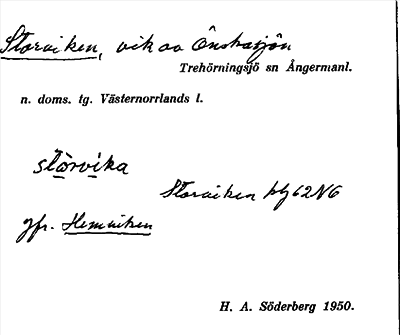 Storviken, vik av Önskasjön
Trehörningsjö sn Ångermanl.
n. doms. tg. Västernorrlands l.
stòrvika
Storviken bl 62 NG
jfr. Hemviken
H. A. Söderberg 1950.